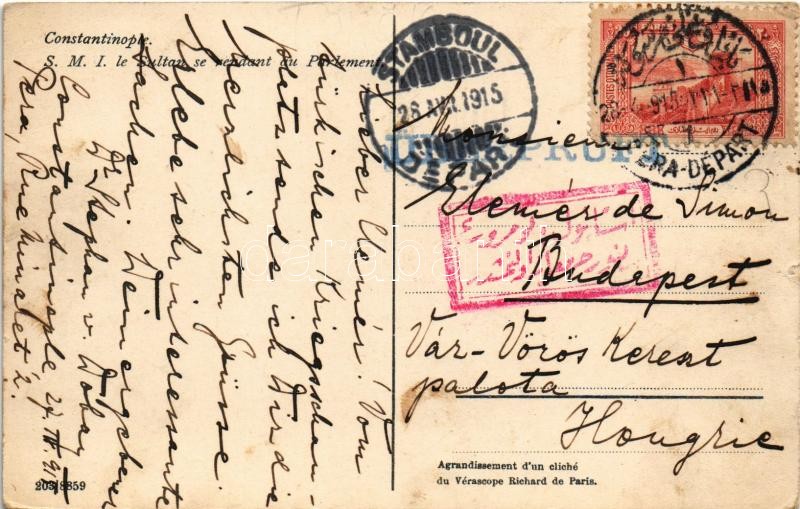 Constantinople.
S. M. I. le Sultan se rendant au Parlement
Lieber Elemér! Vom
türkischen Kriegsschau-
platz sende ich Dir die
herzlichsten Grüsse.
Erlebe sehr interessante
Sachen. Dein ergebener
Dr Stephan v.
Constantinople 27 IV. 915
Pera, Rue 2.
203/8859
STAMBOUL
28 AVR. 1915
DEPART
PERA-DEPART
Monsieur
Elemér de Simon
Budapest
Vár-Vörös Kereszt
palota
Hongrie
Agrandissement d'un cliché
du Vérascope Richard de Paris.